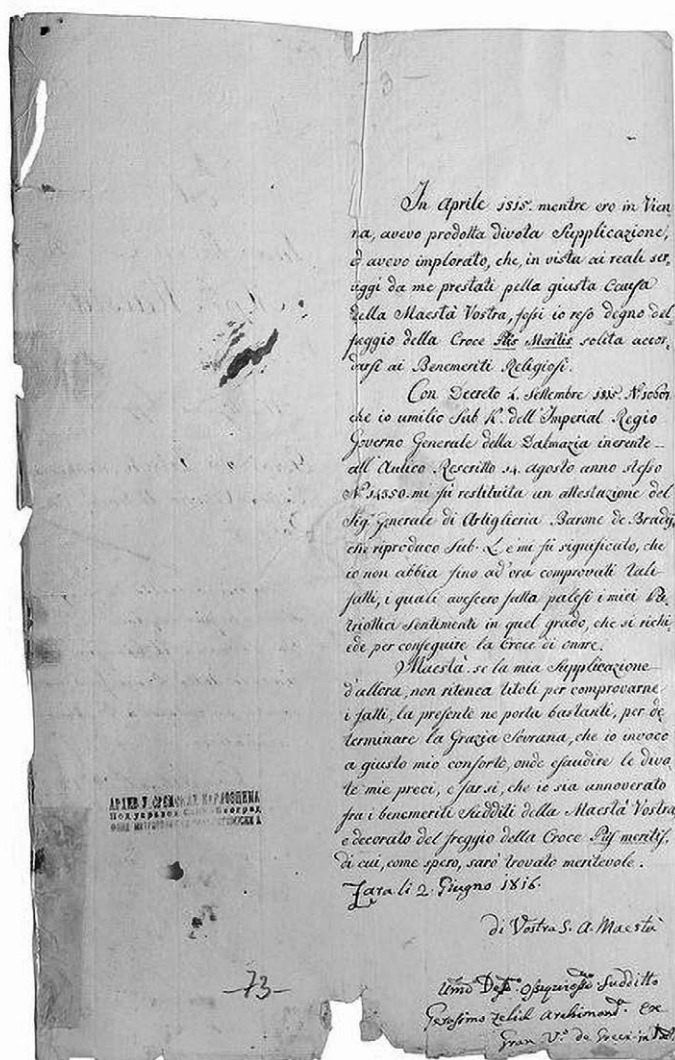 In Aprile 1815. mentre ero in Vien
na, avevo prodotta divota Supplicazione,
ed avevo implorato, che, in vista ai reali ser,
viggi da me prestati pella giusta Causa
della Maestà Vostra, fossi io reso degno del
freggio della Croce Piis Meritis solita accor,
darsi ai Benemeriti Religiosi.
Con Decreto 2. Settembre 1815. Nº
che io umilio Sub K. dell'Imperial Regio
Governo Generale della Dalmazia inerente
all'Aulico Rescritto 14. agosto anno stesso
Nº 14350. mi fù restituita un attestazione del
Sigr Generale di Artiglieria Barone de Brady,
che riproduco Sub. L. e mi fù significato, che
io non abbia fino ad'ora comprovati tali
fatti, i quali avessero fatta palesi i miei Pa,
triottici sentimenti in quel grado, che si richi,
ede per conseguire la Croce di onore.
Maestà. se la mia Supplicazione
d'allora, non ritenea titoli per comprovarne
i fatti, la presente ne porta bastanti, per de,
terminare la Grazia Sovrana, che io invoco
a giusto mio conforto, onde esaudire le divo,
te mie preci, e far sì, che io sia annoverato
fra i benemeriti Sudditi della Maestà Vostra
e decorato del freggio della Croce Piis meritis,
di cui, come spero, sarò trovato meritevole.
Zara li 2. Giugno 1816.
di Vostra S. A. Maestà
Umo Devmo Ossequiosmo Suddito
Gerasimo Zelich Archimandta. Ex
Gran Vo. de Greci in
АРХИВ У СРЕМСКИМ КАРЛОВЦИМА
-73-